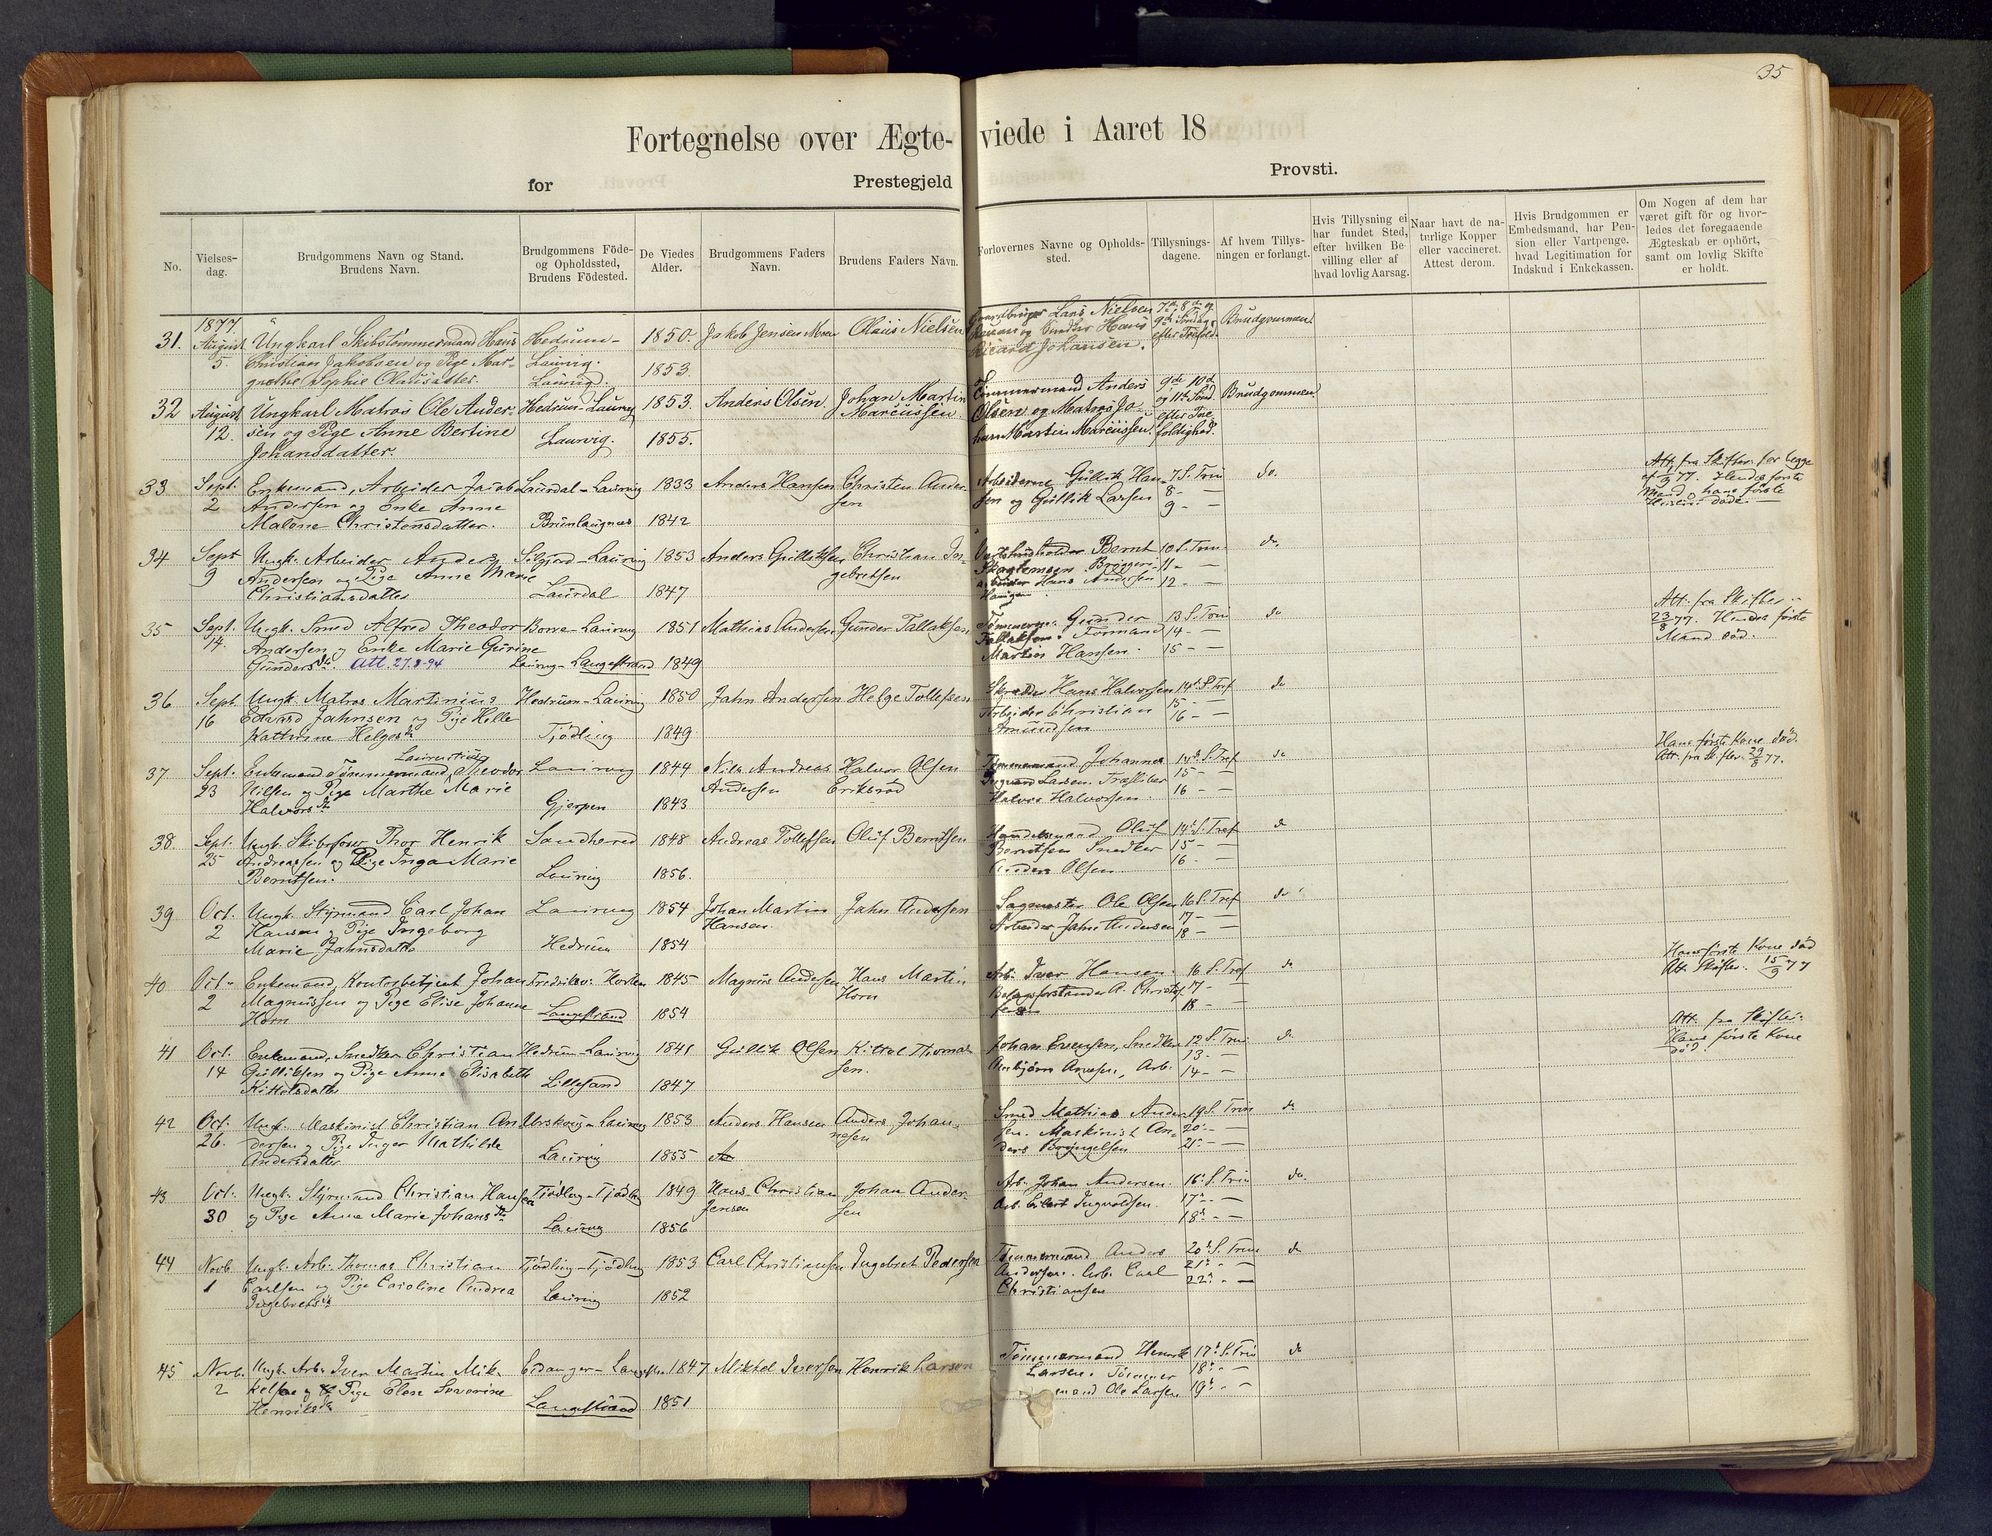 35
Fortegnelse over Ægte-viede i Aaret 18
for Prestegjeld Provsti.
No.
Vielses-
dag.
Brudgommens Navn og Stand.
Brudens Navn.
Brudgommens Föde-
og Opholdssted,
Brudens Födested.
De Viedes
Alder.
Brudgommens Faders
Navn.
Brudens Faders Navn.
Forlovernes Navne og Opholds-
sted.
Tillysnings-
dagene.
Af hvem Tillys-
ningen er forlangt.
Hvis Tillysning ei
har fundet Sted,
efter hvilken Be-
villing eller af
hvad lovlig Aarsag.
Naar havt de na-
terlige Kopper
eller vaccineret.
Attest derom.
Hvis Brudgommen er
Embedsmand, har Pen-
sion eller Vartpenge.
hvad Legitimation for
Indskud i Enkekassen.
Om Nogen af dem har
været gift för og hvor-
ledes det foregaaende
Ægteskab er ophört,
samt om lovlig Skifte
er holdt.
1877.
31. August Ungkarl Skibstömmermand Hans Hedrum- 1850. Jakob Jensen Olaus Nielsen Lars Nielsen 7de 8de og Brudgommen
5. Christian Jakobsen og Pige Mar- Laurvig. Hans 9de Söndag
grethe Sophie Olausdatter. Laurvig 1853. Ricard Johansen. efter Trefold.
32 August Ungkarl Matros Ole Ander- Hedrum-Laurvig 1853. Anders Olsen. Johan Martin Tömmermand Anders 9de 10de Brudgommen
12. sen og Pige Anne Bertine Marcussen. Olsen og Matros Jo- og 11te Sönd.
Johansdatter. Laurvig. 1855. han Martin Marcussen. efter Tre-
foldighed.
33 Sept. Enkemand, Arbeider Jacob Laurdal-Laurvig 1833 Anders Hansen Christen Ander- Arbeiderne Gullik Han- 7 S. Trin do. Att. fra Skifter. for begge
2 Andersen og Enke Anne sen sen og Gullik Larsen 8 - - 77. Hendes første
Malene Christensdatter. Brunlaugnæs 1842 9 - - Mand og hans første
Hustru døde.
34 Sept Ungk. Arbeider Anders Silgjord-Laurvig 1853 Anders Gulliksen Christian In- Bernt 10 S. Trin do.
9 Andersen og Pige Anne Marie gebretsen Skagtensen Bryggeri- 11 -
Christiansdatter Laurdal 1847 arbeider Hans Andersen 12 -
Haugen
35 Sept. Ungk. Smed Alfred Theodor Borre-Laurvig 1851 Mathias Andersen Gunder Tallaksen Tömmerm. Gunder 13 S. Trin do Att. fra Skifter
14. Andersen og Enke Marie Gurine Tallaksen. Formand 14 - - 23/8 77. Hendes første
Gundersdr. Att. 27.8-94 Laurvig-Langestrand 1849 Martin Hansen. 15 - - Mand død.
36 Sept. Ungk. Matros Martinius Hedrum-Laurvig 1850 Jahn Andersen Helge Tollefsen Skrædder Hans Halvorsen 14 S. Tref do
16 Edvard Jahnsen og Pige Helle Arbeider Christian 15 - -
Kathrine Helgesdr Tjödling 1849 Amundsen 16 - -
37 Sept. Enkemand Tömmermand Laurentius Theodor Laurvig 1844 Nils Andreas Halvor Olsen Tömmermand Johannes 14de S. Tref do Hans første Kone død.
23 Nilsen og Pige Marthe Marie Andersen Eriksröd Ingvard Larsen. 15 - - Att. fra Skifter. 29/8 77.
Halvorsdr Gjerpen 1843 Halvor Halvorsen. 16 - -
38 Sept. Ungk. Skibsförer Thor Henrik Sandherred 1848 Andreas Tollefsen Oluf Berntsen Handelsmand Oluf 14de S. Tref do
25 Andreassen og Pige Inga Marie Berntsen Snedker 15 - -
Berntsen. Laurvig 1856. Anders Olsen 16 - -
39 Oct. Ungk. Styrmand Carl Johan Laurvig 1854 Johan Martin Jahn Andersen Sagmester Ole Olsen 16 S. Tref do
2 Hansen og Pige Ingeborg Hansen. Arbeider Jahn Andersen 17 - -
Marie Jahnsdatter Hedrum 1854 18 - -
40 Oct. Enkemand, Kontorbetjent Johan Fredriksv: Horten 1845 Magnus Andersen Hans Martin Arb. Iver Hansen. 16 S. Tref do Hans første Kone død
2 Magnussen og Pige Elise Johanne Horn A. Christof- 17 - - Att. Skifter. 15/9 77
Horn Langestrand 1854 fersen 18 - -
41 Oct. Enkemand, Snedker Christian Hedrum-Laurvig 1841 Gullik Olsen Kittel Thomas- Johan Evensen, Snedker 12 S. Trin do Att. fra Skifter
14 Gulliksen og Pige Anne Elisabeth sen. Anbjörn Arnesen, Arb. 13 - - Hans første Kone
Kittelsdatter Lillesand 1847 14 - - død.
42 Oct. Ungk. Maskinist Christian An- Urskoug-Laurvig 1853 Anders Hansen Anders Johan- Smed Mathias Ander- 19 S. Trin do
26. dersen og Pige Inger Mathilde nesen sen. Maskinist An- 20 - -
Andersdatter Laurvig 1855 ders Bryngelsen 21 - -
43 Oct. Ungk. Styrmand Christian Hansen Tjödling-Tjödling 1849 Hans Christian Johan Ander- Arb. Johan Andersen. 16 S. Trin do.
30 og Pige Anne Marie Johansdr Jensen sen Arb. Eilert Ingvoldsen. 17 - -
Laurvig 1856 18 - -
44 Novb. Ungk. Arb. Thomas Christian Tjödling-Tjödling 1853 Carl Christiansen Ingebret Pedersen Tömmermand Anders 20de S. Trin do
1 Carlsen og Pige Caroline Andrea Andersen. Arb. Carl 21 - -
Ingebretsdr Laurvig 1852 Christiansen 22 - -
45 Novb. Ungk. Arb. Iver Martin Mik- Eidanger-Langestr. 1847 Mikkel Iversen Henrik Larsen Tömmermand Henrik 17de S. Trin do
2 kelsen og Pige Elen Severine Larsen. Tömmer- 18 - -
Henriksdr Langestrand 1851 mand Ole Larsen 19 - -